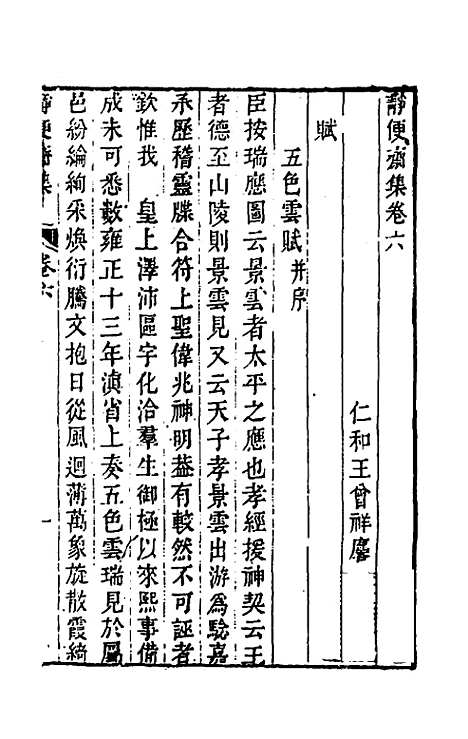 靜便齋集卷六
仁和王曾祥麐
賦
五色雲賦并序
臣按瑞應圖云景雲者太平之應也孝經援神契云王
者德至山陵則景雲見又云天子孝景雲出游為騐嘉
承歷稽靈牒合符上聖偉兆神明葢有較然不可誣者
欽惟我 皇上澤沛區宇化洽羣生御極以來熙事備
成未可悉數雍正十三年滇省上奏五色雲瑞見於屬
邑紛綸絢采煥衍騰文抱日從風迴薄萬象旋散霞綺
靜便齋集 卷六 一